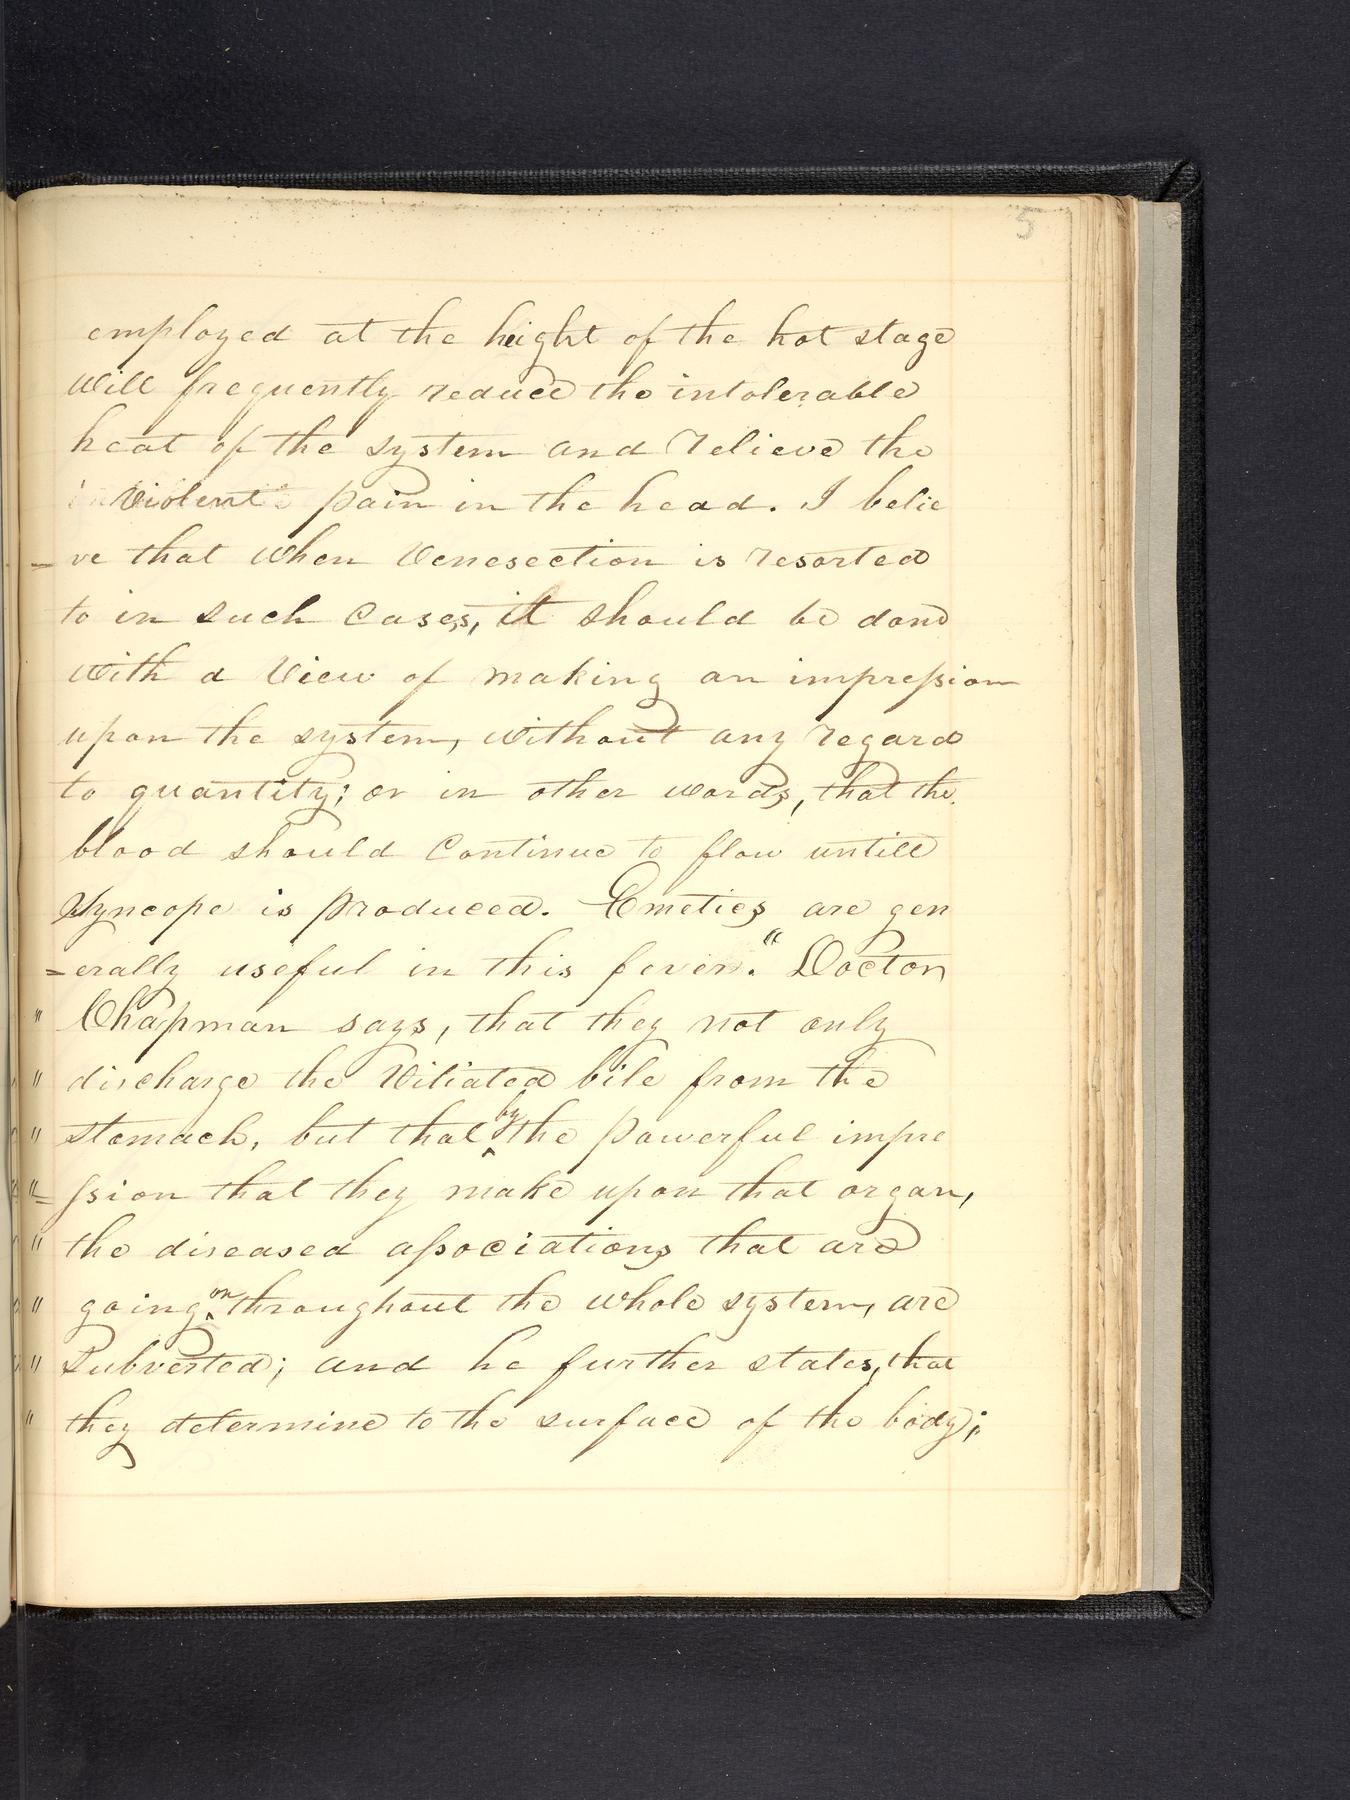 5
employed at the height of the hot stage
will frequently reduce the intolerable
heat of the system and relieve the
violent pain in the head. I belie
= ve that when Venesection is resorted
to in such cases, it should be done
with a view of making an impression
upon the system, without any regard
to quantity; or in other words, that the
blood should continue to flow untill
Syncope is produced. Emetics are gen
= erally useful in this fever. "Doctor
" Chapman says, that they not only
" discharge the vitiated bile from the
" stomach, but that by the powerful impre
"= ssion that they make upon that organ,
" the diseased associations that are
" going on throughout the whole system, are
" Subverted; and he further states, that
" they determine to the surface of the body;